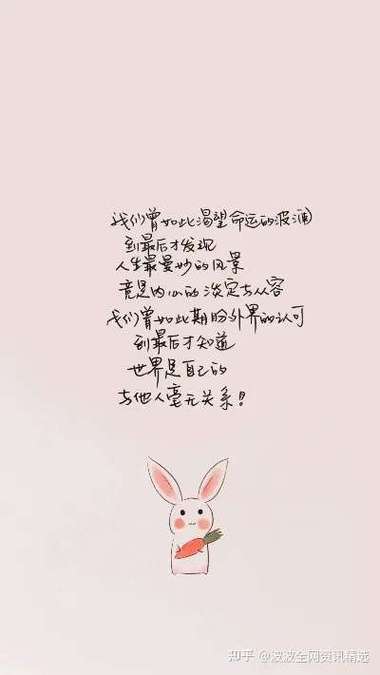 我们曾如此渴望命运的波澜
到最后才发现
人生最曼妙的风景
竟是内心的淡定与从容
我们曾如此期盼外界的认可
到最后才知道
世界是自己的
与他人毫无关系！
知乎 @波波全网资讯精选